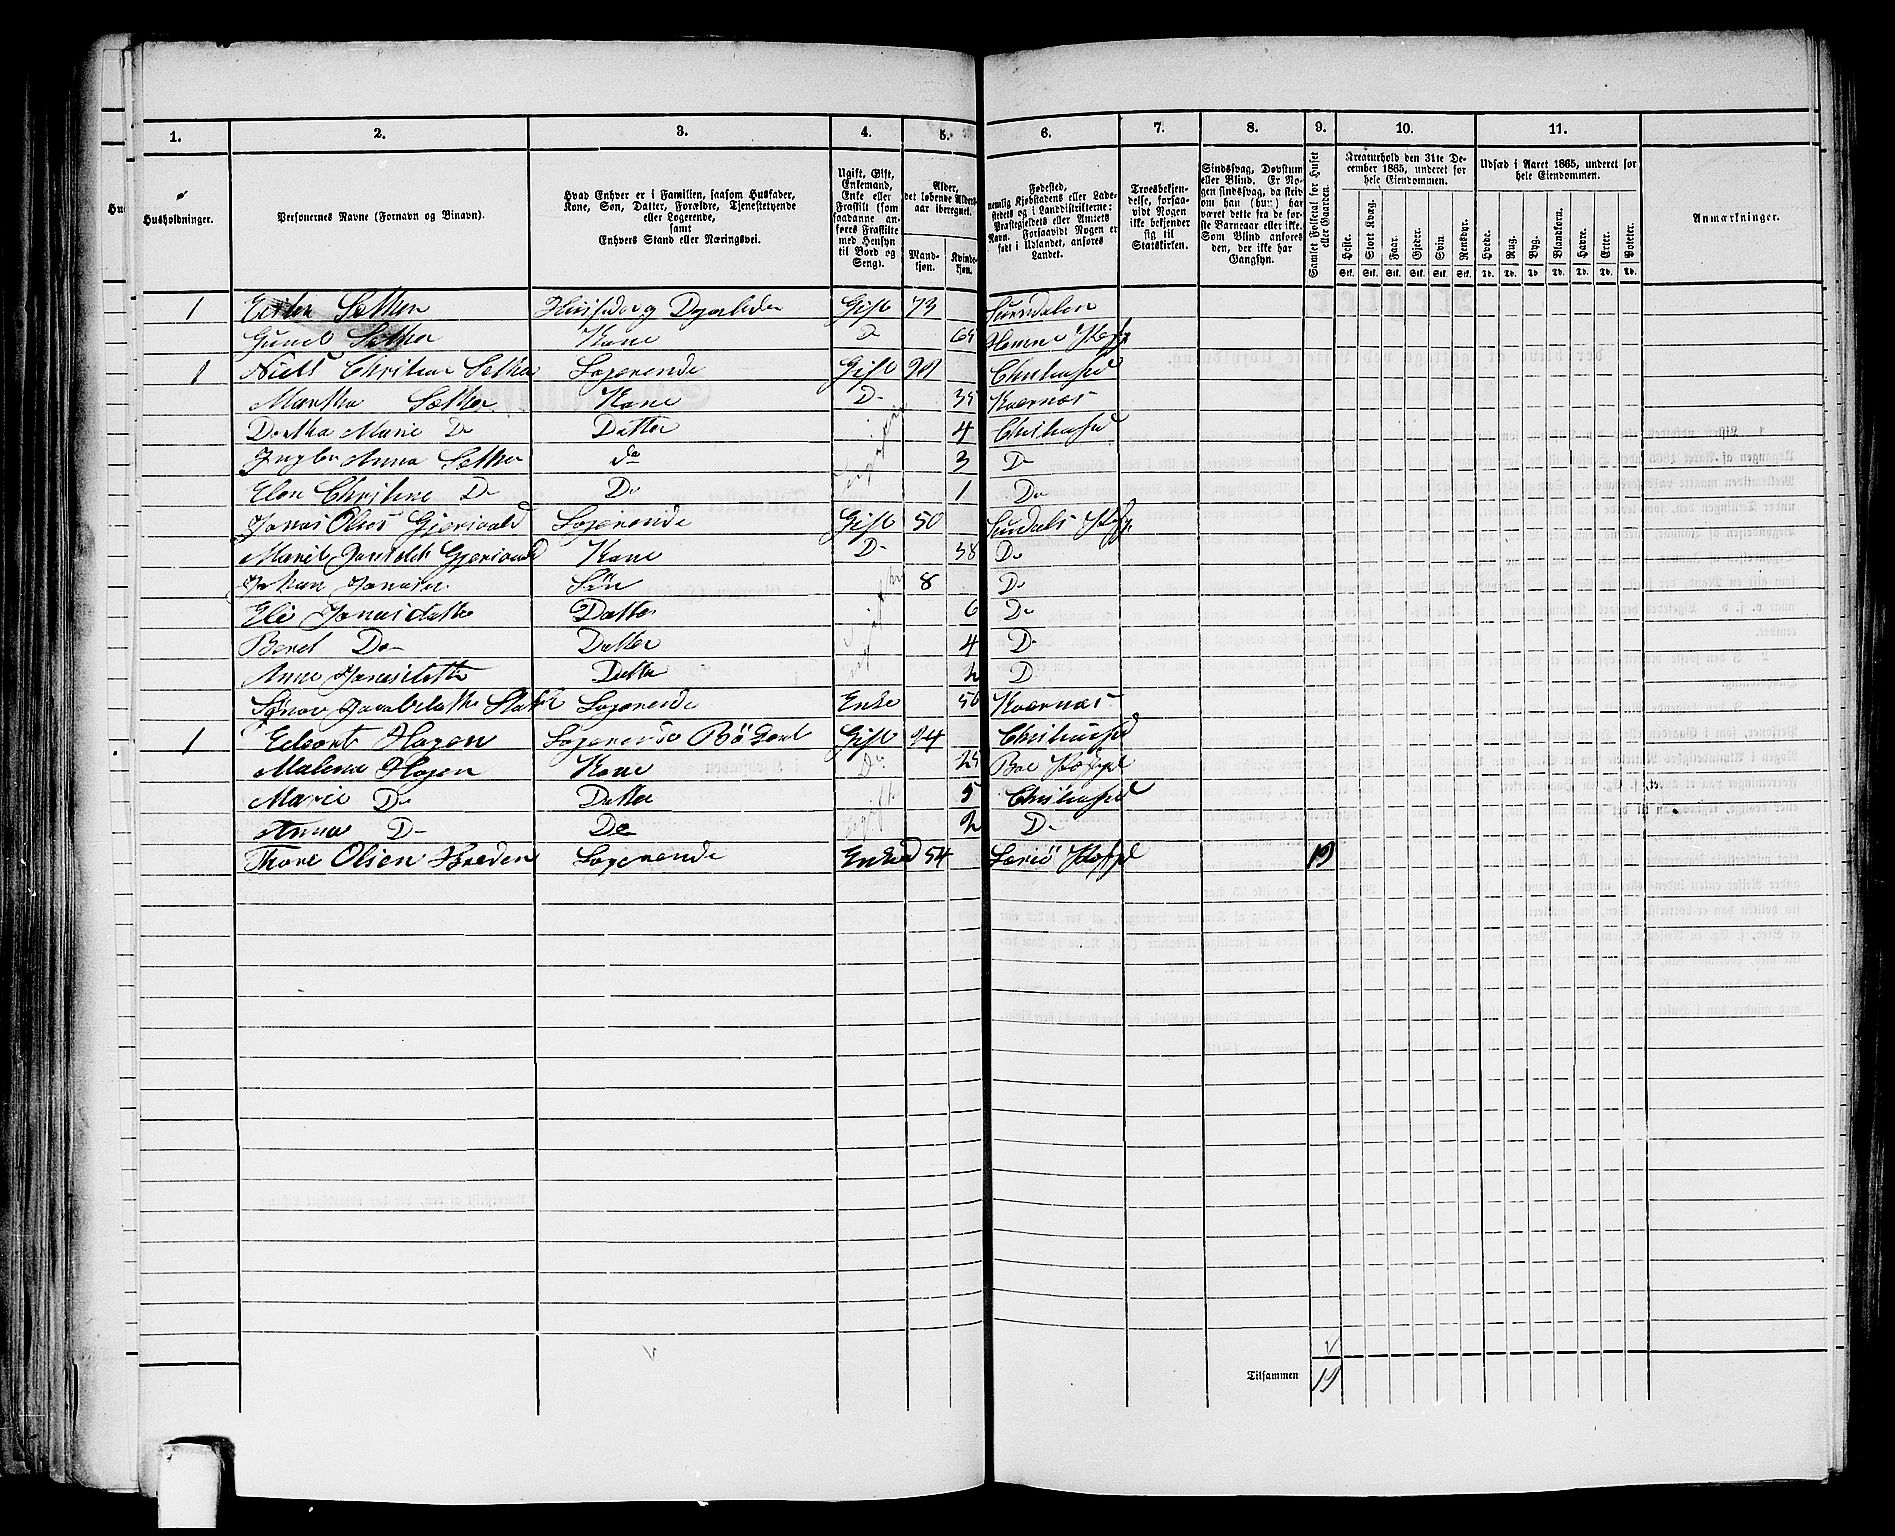 1. 2. 3. 4. 5. 6. 7. 8. 9. 10. 11.
Husholdninger.
Personernes Navne (Fornavn og Binavn).
Hvad Enhver er i Familien, saasom Husfader,
Kone, Søn, Datter, Forældre, Tjenestetyende
eller Logerende,
samt
Enhvers Stand eller Næringsvei.
Ugift, Gift,
Enkemand,
Enke eller
Fraskilt (som
saadanne an-
føres Fraskilte
med Hensyn
til Bord og
Seng).
Alder,
det løbende Alders-
aar iberegnet.
Mand-
kjøn.
Kvinde-
kjøn.
Fødested,
nemlig Kjøbstadens eller Lade-
stedets og i Landdistrikterne:
Præstegjeldets eller Amtets
Navn. Forsaavidt Nogen er
født i Udlandet, anføres
Landet.
Troesbekjen-
delse, forsaa-
vidt Nogen
ikke bekjender
sig til
Statskirken.
Sindssvag, Døvstum
eller Blind. Er No-
gen sindssvag, da skriv
om han (hun) har
været dette fra de før-
ste Barneaar eller ikke.
Som Blind anføres
den, der ikke har
Gangsyn.
Samlet Folketal for Huset
eller Gaarden.
Kreaturhold den 31te De-
cember 1865, underet for
hele Eiendommen.
Heste. Stort Kvæg. Faar. Gjeder. Svin. Rensdyr.
Stk. Stk. Stk. Stk. Stk. Stk.
Udsæd i Aaret 1865, underet for
hele Eiendommen.
Hvede. Rug. Byg. Blandkorn. Havre. Erter. Poteter.
Td. Td. Td. Td. Td. Td. Td.
Anmærkninger.
1 Sether Gift 73 Surndalen
Gunel Sether Kone D 65 Hemne
1 Niels Christian Sether Logerende Gift Christiansd
Martha Sether Kone D 35 Kvernæs
Dortha Marie Do Datter 4 Christiansd
Anna Sether do 3 D
Christine Do Do 1 Do
Jonas Olsen Gjerivald Logerende Gift 50 Surdals
Marit Gjerivald Kone D 38 D
Johan Jonasen Søn 8 D
Eli Jonasdatter Datter 6 D
Beret Do Datter 4 D
Anne Jonasdatter Datter 2 D
Jacobsdatter Logerende Enke 56 Kvernæs
1 Edvart Hagen Logerende Gift Christiansd
Malena Hagen Kone Do 25
Marie Do Datter 5 Christiansd
Anna D Do 2 D
Thore Olsen Logerende Enked 54 19
Tilsammen 19